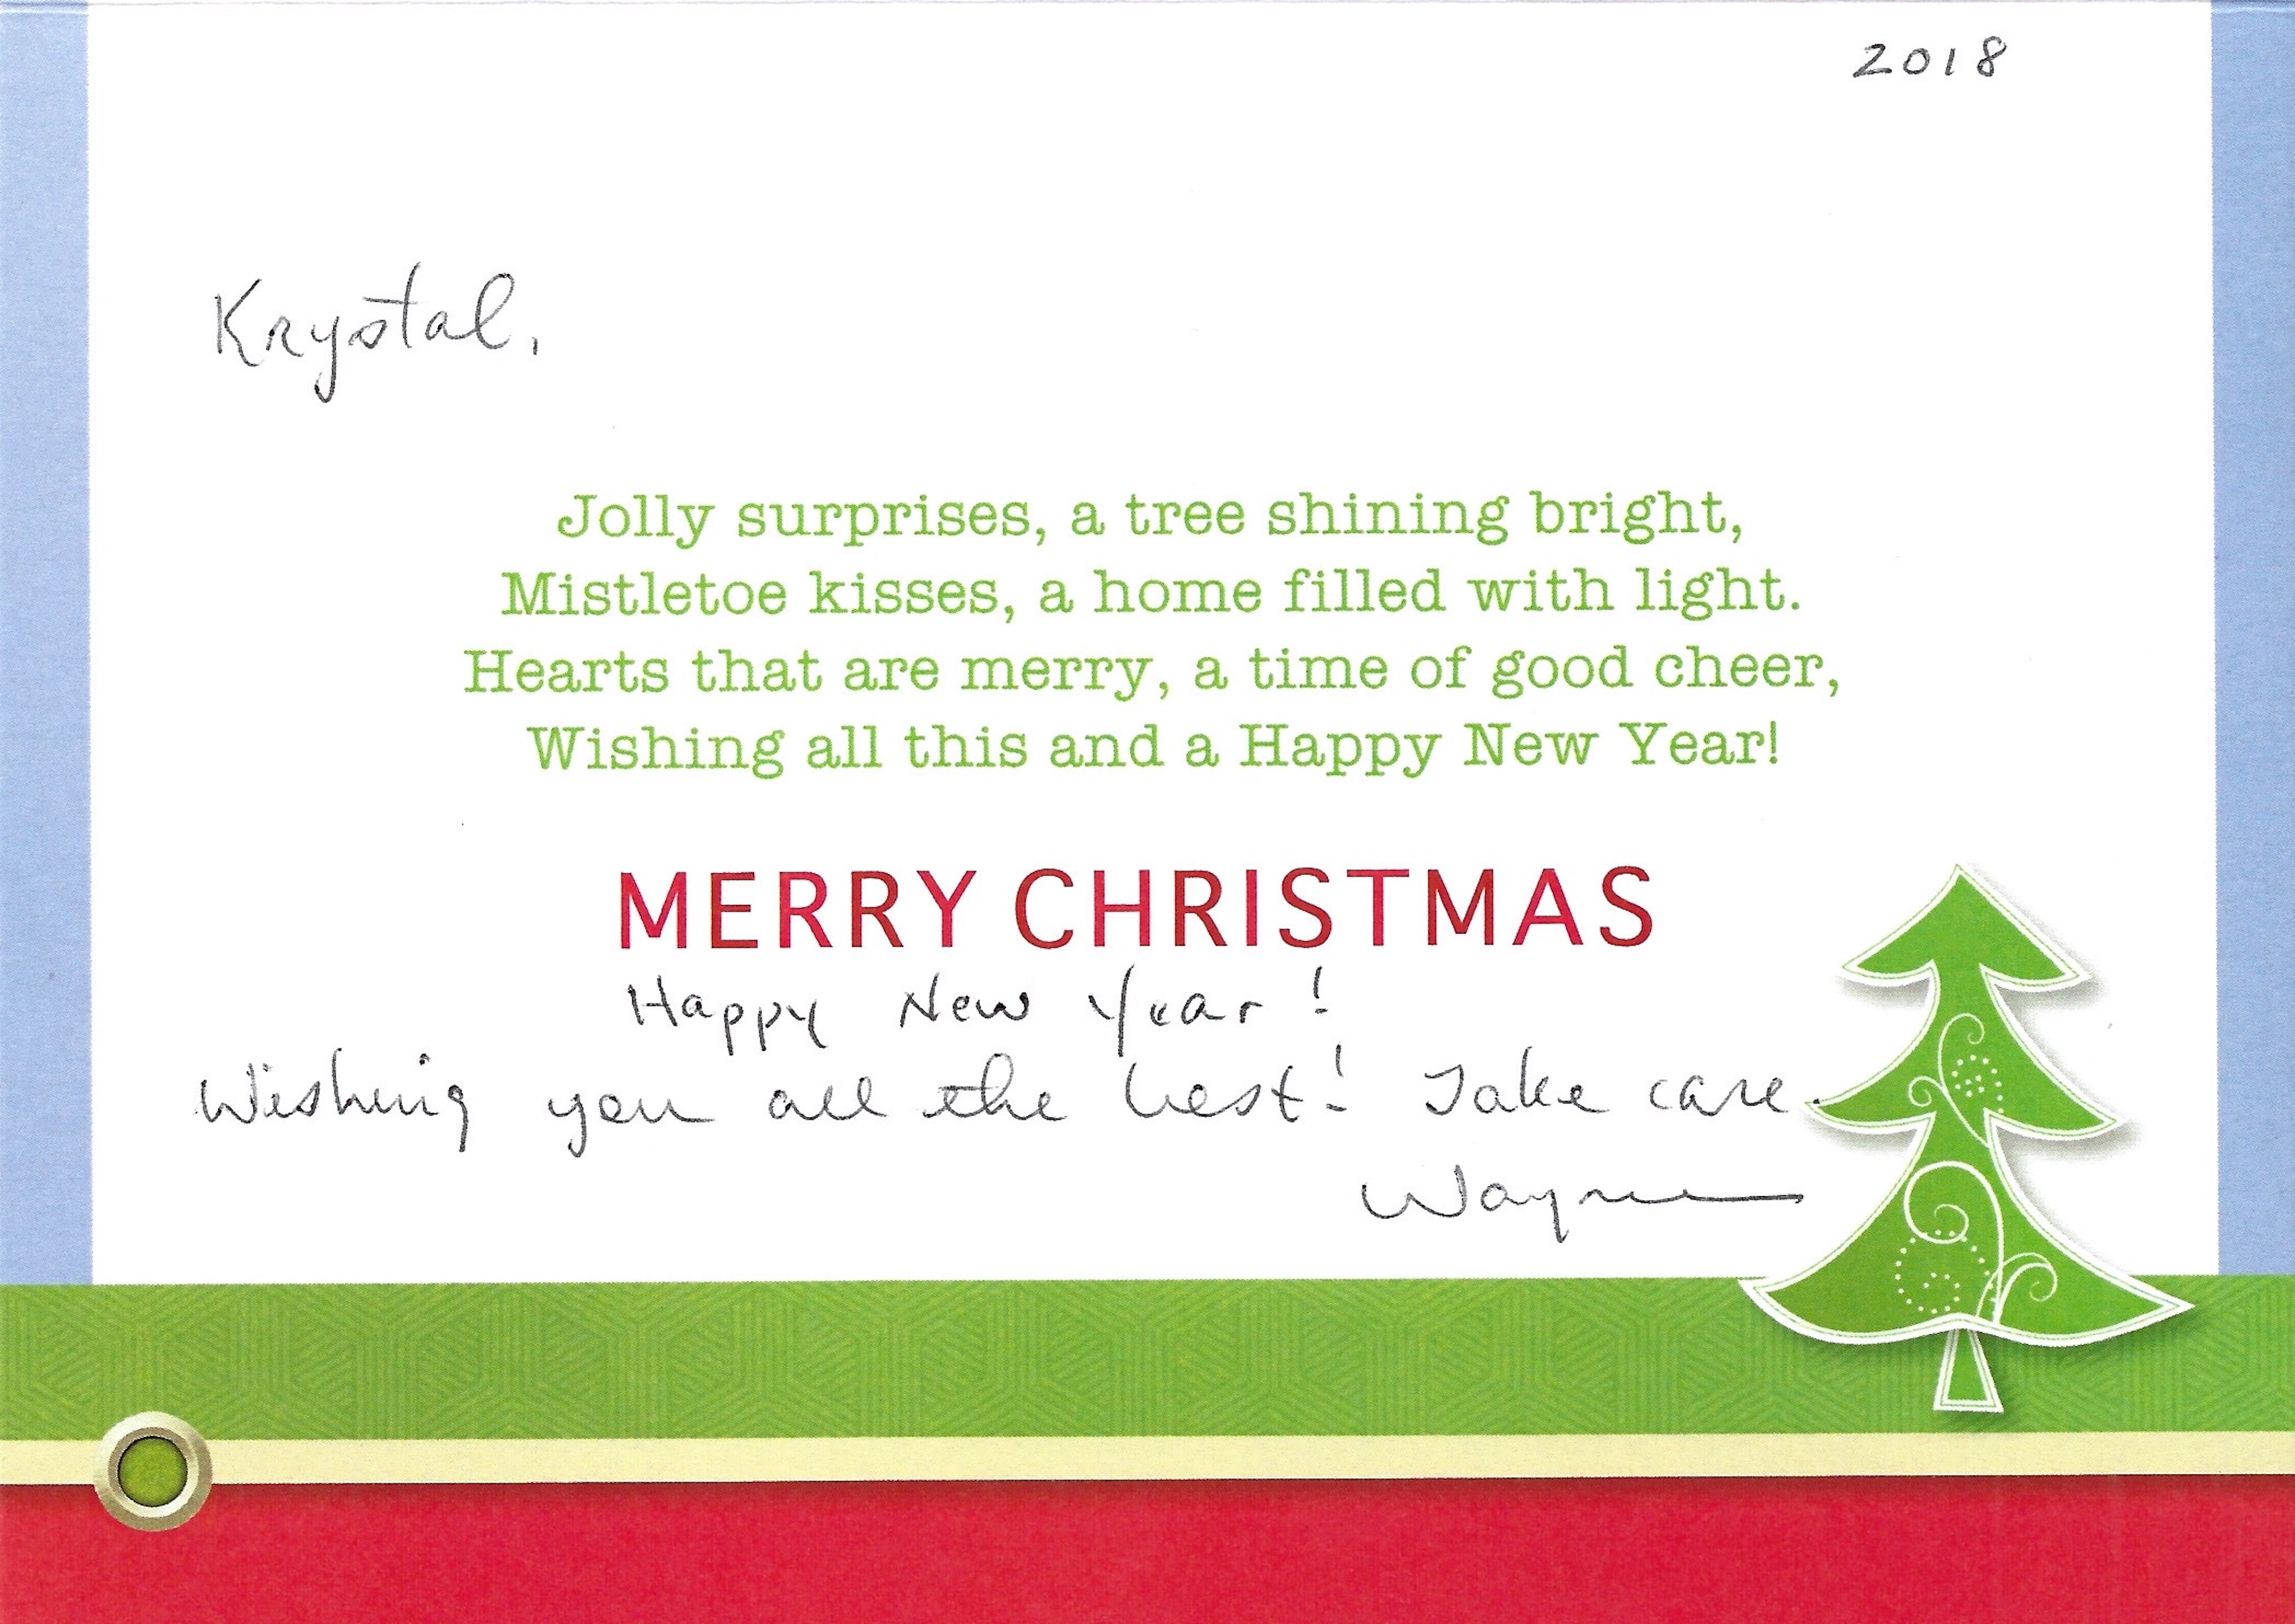 2018
Krystal,
Jolly surprises, a tree shining bright,
Mistletoe kisses, a home filled with light.
Hearts that are merry, a time of good cheer,
Wishing all this and a Happy New Year!
MERRY CHRISTMAS
Happy New Year!
Wishing you all the best! Take care.
Wayne